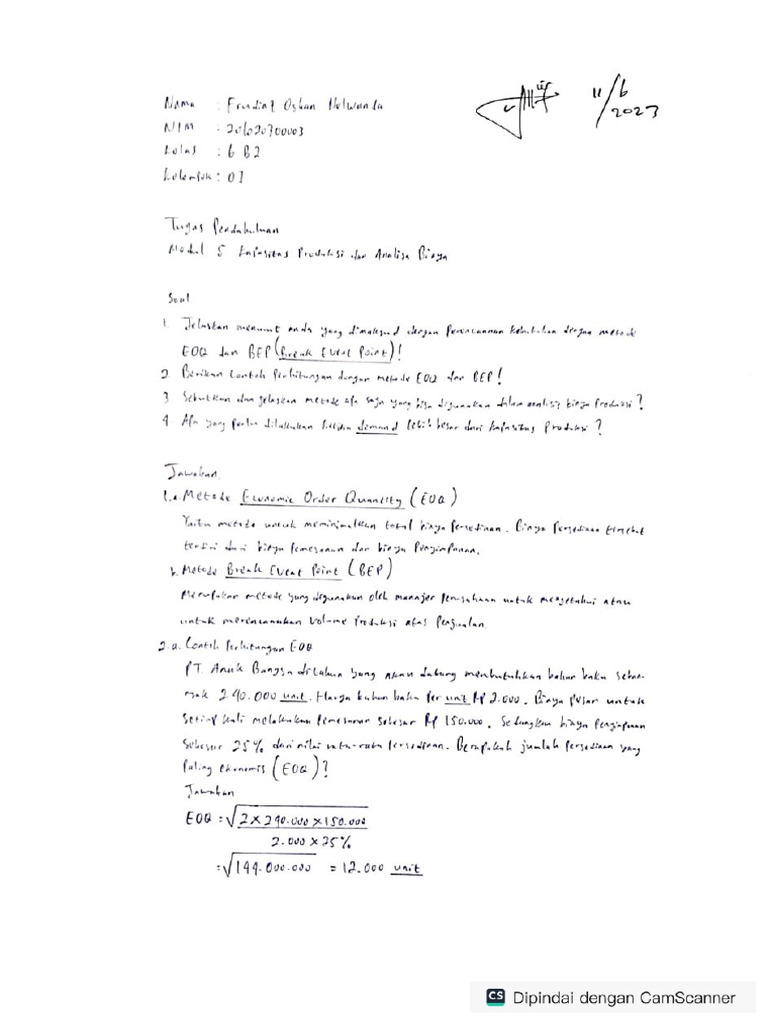 Nama : Oskan
11/6
NIM : 201020700003
2023
Kelas : 6 B2
Kelompok : 01
Tugas Pendahuluan
Modul 5 Kapasitas Produksi dan Analisa Biaya
Soal
1. Jelaskan menurut anda yang dimaksud dengan Perencanaan kebutuhan dengan metode
EOQ dan BEP (Break Event Point)!
2. Berikan Contoh Perhitungan dengan metode EOQ dan BEP!
3 Sebutkan dan jelaskan metode apa saja yang bisa digunakan dalam analisis biaya Produksi?
4. Apa yang perlu dilakukan ketika demand lebih besar dari kapasitas Produksi?
Jawaban
1.a. Metode Economic Order Quantity (EOQ)
Yaitu metode untuk meminimalkan total biaya Persediaan. Biaya Persediaan tersebut
terdiri dari biaya Pemesanan dan biaya Penyimpanan.
b. Metode Break Event Point (BEP)
Merupakan metode yang digunakan oleh manajer Perusahaan untuk mengetahui atau
untuk merencanakan volume Produksi atas Penjualan.
2.a. Contoh Perhitungan EOQ
PT. Anak Bangsa ditahun yang akan datang membutuhkan bahan baku seba-
nyak 240.000 unit. Harga bahan baku Per unit Rp 2.000. Biaya Pesan untuk
setiap kali melakukan Pemesanan sebesar Rp 150.000. Sedangkan biaya Penyimpanan
sebesar 25% dari nilai rata-rata Persediaan. Berapakah jumlah Persediaan yang
Paling ekonomis (EOQ)?
Jawaban
EOQ = √2 × 240.000 × 150.000
2.000 × 25%
= √144.000.000 = 12.000 unit
CS Dipindai dengan CamScanner